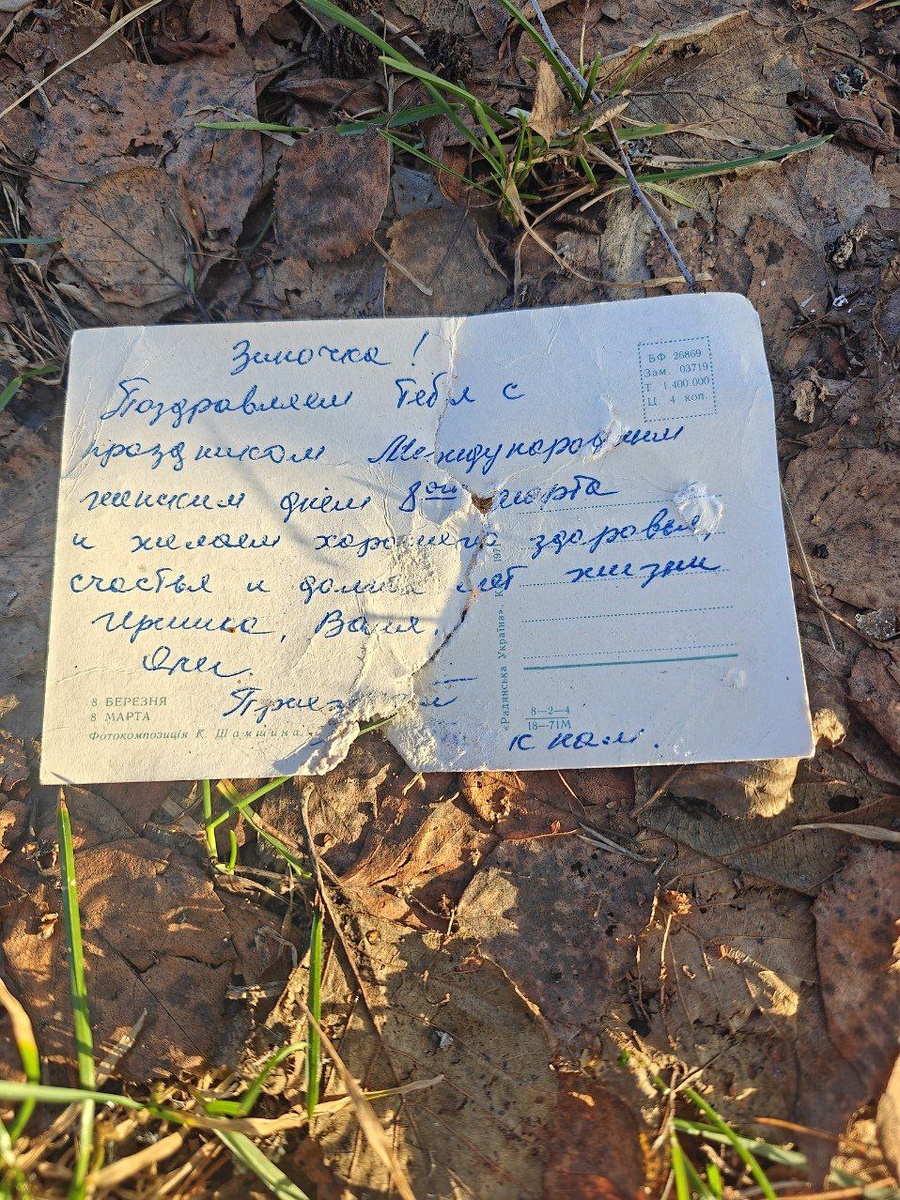 Зиночка!
Поздравляем Тебя с
праздником Международным
женским днём 8ого марта
и желаем хорошего здоровья,
счастья и долгих лет жизни
Иришка, Валя,
к нам.
БФ 26869
Зам. 03719
Т 1.400.000
Ц 4 коп.
8 БЕРЕЗНЯ
8 МАРТА
Фотокомпозиція К. Шамшина.
«Радянська Україна». К
8—2—4
18—71М